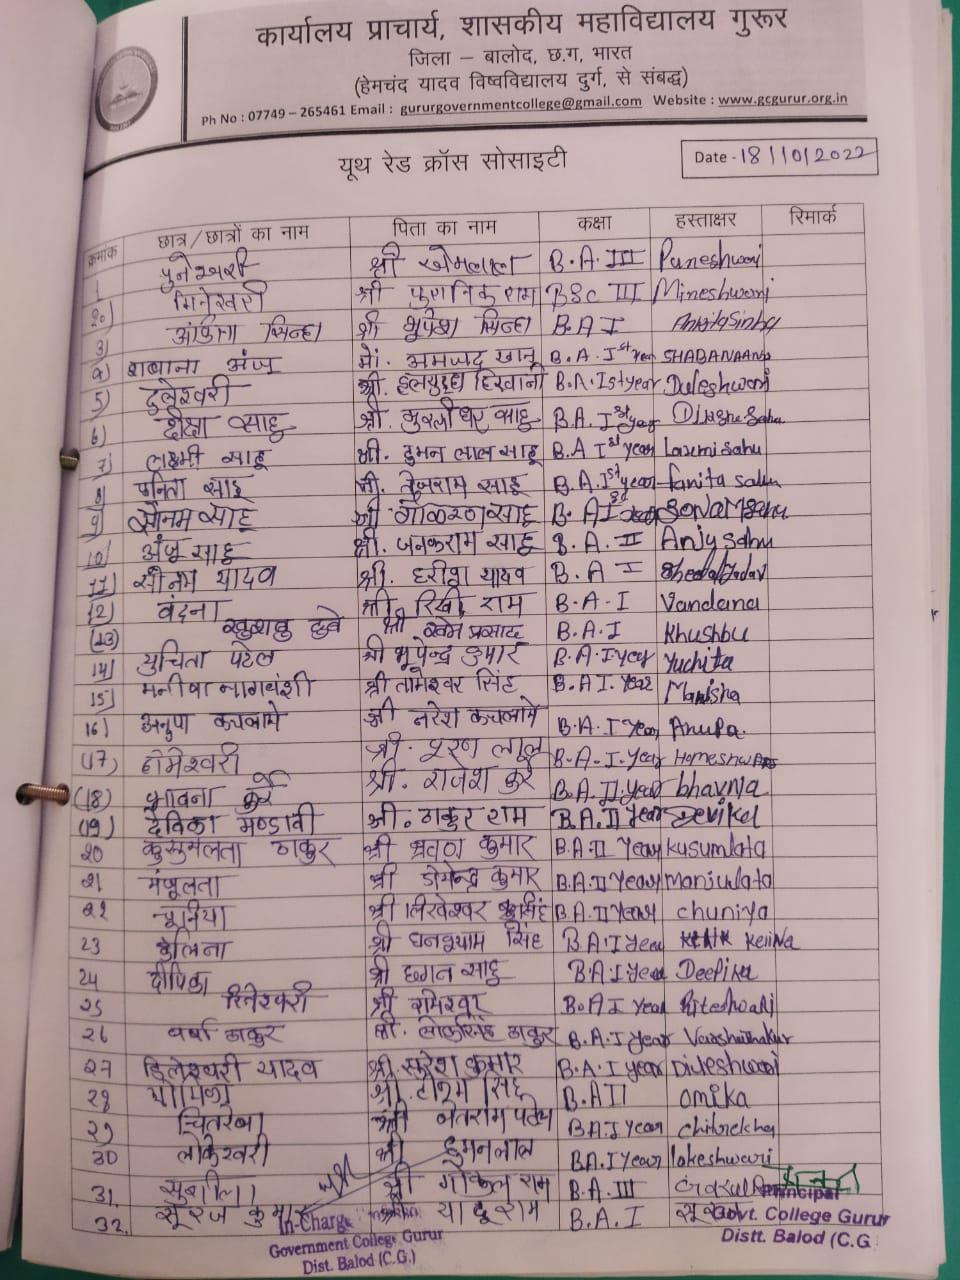 कार्यालय प्राचार्य, शासकीय महाविद्यालय गुरूर
जिला – बालोद, छ.ग, भारत
(हेमचंद यादव विष्वविद्यालय दुर्ग, से संबद्ध)
Ph No : 07749 – 265461 Email : gururgovernmentcollege@gmail.com Website : www.gcgurur.org.in
यूथ रेड क्रॉस सोसाइटी
Date - 18/10/2022
क्रमांक छात्र/छात्रों का नाम पिता का नाम कक्षा हस्ताक्षर रिमार्क
1 पुनेश्वरी श्री खेमलाल B.A III Puneshwari
2) मिनेश्वरी श्री पुरानिक राम BSc III Mineshwari
3) अंकिता सिन्हा श्री भूपेश सिन्हा B.A I Ankita Sinha
4) शबाना अंजुम मो. अमजद खान B.A. Ist year
5) दुलेश्वरी श्री. हिरवानी B.A. Ist year Duleshwari
6) दीक्षा साहू श्री. मुरलीधर साहू B.A. Ist year Sahu
7) लक्ष्मी साहू श्री. हुमन लाल साहू B.A Ist year Laxmi sahu
8 साहू श्री. तेजराम साहू B.A. Ist year sahu
9) सोनम साहू श्री साहू B.A I year Sonam Sahu
10) अंजू साहू श्री. जनकराम साहू B.A. II Anju sahu
11) सोनम यादव श्री. हरीश यादव B.A I Yadav
12) वंदना श्री. रिखी राम B.A.I Vandana
(13) खुशबु दुबे श्री खेम प्रसाद B.A.I Khushbu
14) युचिता पटेल श्री भूपेन्द्र कुमार B.A.I year Yuchita
15) मनीषा नागवंशी श्री तामेश्वर सिंह B.A I. Year Manisha
16) अनुपा कचलामे श्री नरेश कचलामे B.A.I Year Anupa
(17) होमेश्वरी श्री. पूरण लाल B.A.I.Year
(18) भावना कुर्रे श्री. राजेश कुर्रे B.A.II.Year bhavna
(19) देविका मण्डावी श्री. ठाकुर राम B.A.II Year Devika
20 कुसुमलता ठाकुर श्री श्रवण कुमार B.A.II Year Kusumlata
21 मंजूलता श्री डोमेन्द्र कुमार B.A.II Year Manjulata
22 चूनिया श्री B.A.II Year chuniya
23 श्री घनश्याम सिंह B.A.I Year
24 दीपिका श्री छगन साहू B.A.I Year Deepika
25 रितेश्वरी श्री रामेश्वर B.A I Year Riteshwari
26 वर्षा ठाकुर श्री. ठाकुर B.A.I Year Varsha thakur
27 डिलेश्वरी यादव श्री. सुरेश कुमार B.A.I year Dileshwari
28 श्री. सिंह B.A II omika
29 चित्ररेखा श्री पटेल B.A.I Year chitrekha
30 लोकेश्वरी श्री हुमनलाल B.A.I Year lokeshwari
31. सुशीला श्री गोकुल राम B.A.III
32. सूरज कुमार श्री यादू राम B.A.I
In-Charge
Government College Gurur
Dist. Balod (C.G.)
Principal
Govt. College Gurur
Distt. Balod (C.G